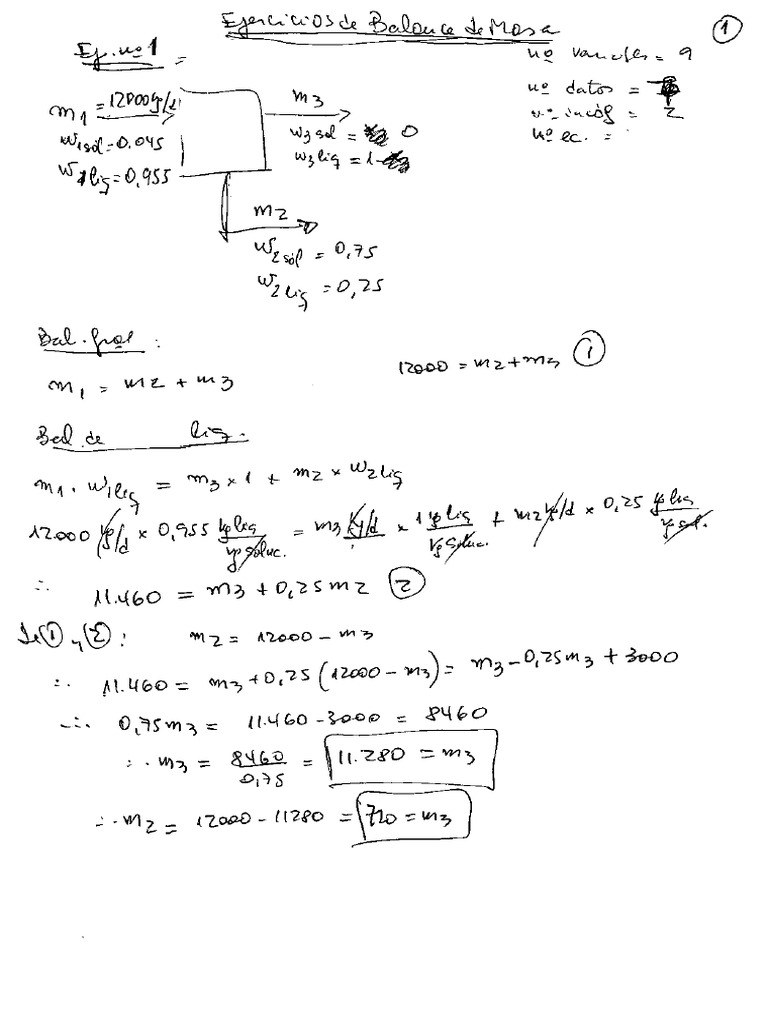 Ejercicios de Balance de Masa
1
Ej. nº 1
nº variables = 9
nº datos =
nº incóg = 2
nº ec. =
m1 = 12000 kg/d
w1sól = 0.045
w1liq = 0,955
m3
w3sol = 0
w3liq = 1
m2
w2sól = 0,75
w2liq = 0,25
Bal. gral :
m1 = m2 + m3
12000 = m2 + m3 ①
Bal. de liq.
m1 · w1liq = m3 × 1 + m2 × w2liq
12000 kg/d × 0,955 kg liq/kg soluc. = m3 kg/d × 1 kg liq/kg soluc. + m2 kg/d × 0,25 kg liq/kg sol.
∴ 11.460 = m3 + 0,25 m2 ②
De ① y ② : m2 = 12000 - m3
∴ 11.460 = m3 + 0,25 (12000 - m3) = m3 - 0,25 m3 + 3000
∴ 0,75 m3 = 11.460 - 3000 = 8460
∴ m3 = 8460/0,75 = 11.280 = m3
∴ m2 = 12000 - 11280 = 720 = m3